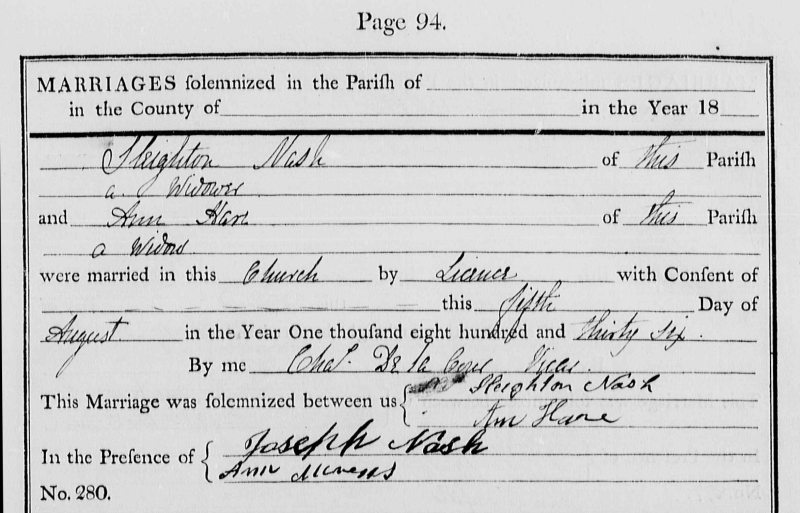 Page 94.
MARRIAGES ſolemnized in the Pariſh of
in the County of in the Year 18
Sleighton Nash of this Pariſh
a Widower
and Ann Hare of this Pariſh
a Widow
were married in this Church by Licence with Conſent of
this fifth Day of
August in the Year One thouſand eight hundred and thirty six.
By me Chaˢ. De la Cour Vicar.
This Marriage was ſolemnized between us Sleighton Nash
Ann Hare
In the Preſence of Joseph Nash
Ann
No. 280.